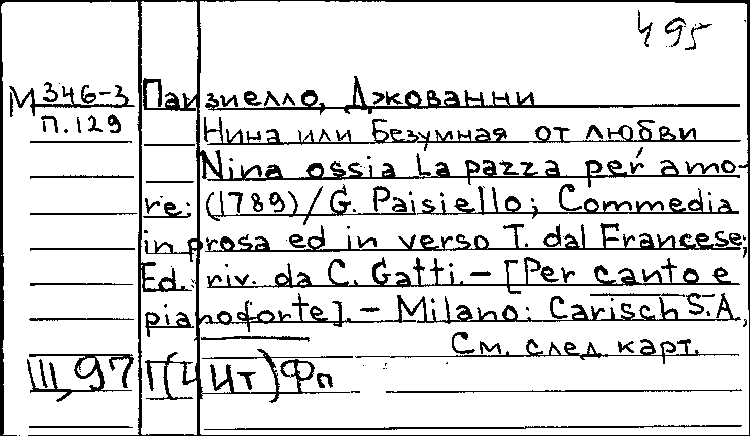 495
М 346-3 Паизиелло, Джованни
П.129 Нина или Безумная от любви
Nina ossia La pazza per amo-
re: (1789) / G. Paisiello; Commedia
in prosa ed in verso T. dal Francese;
Ed. riv. da C. Gatti. – [Per canto e
pianoforte]. – Milano: Carisch S.A.,
См. след. карт.
Ш,97 П(4Ит)Фп